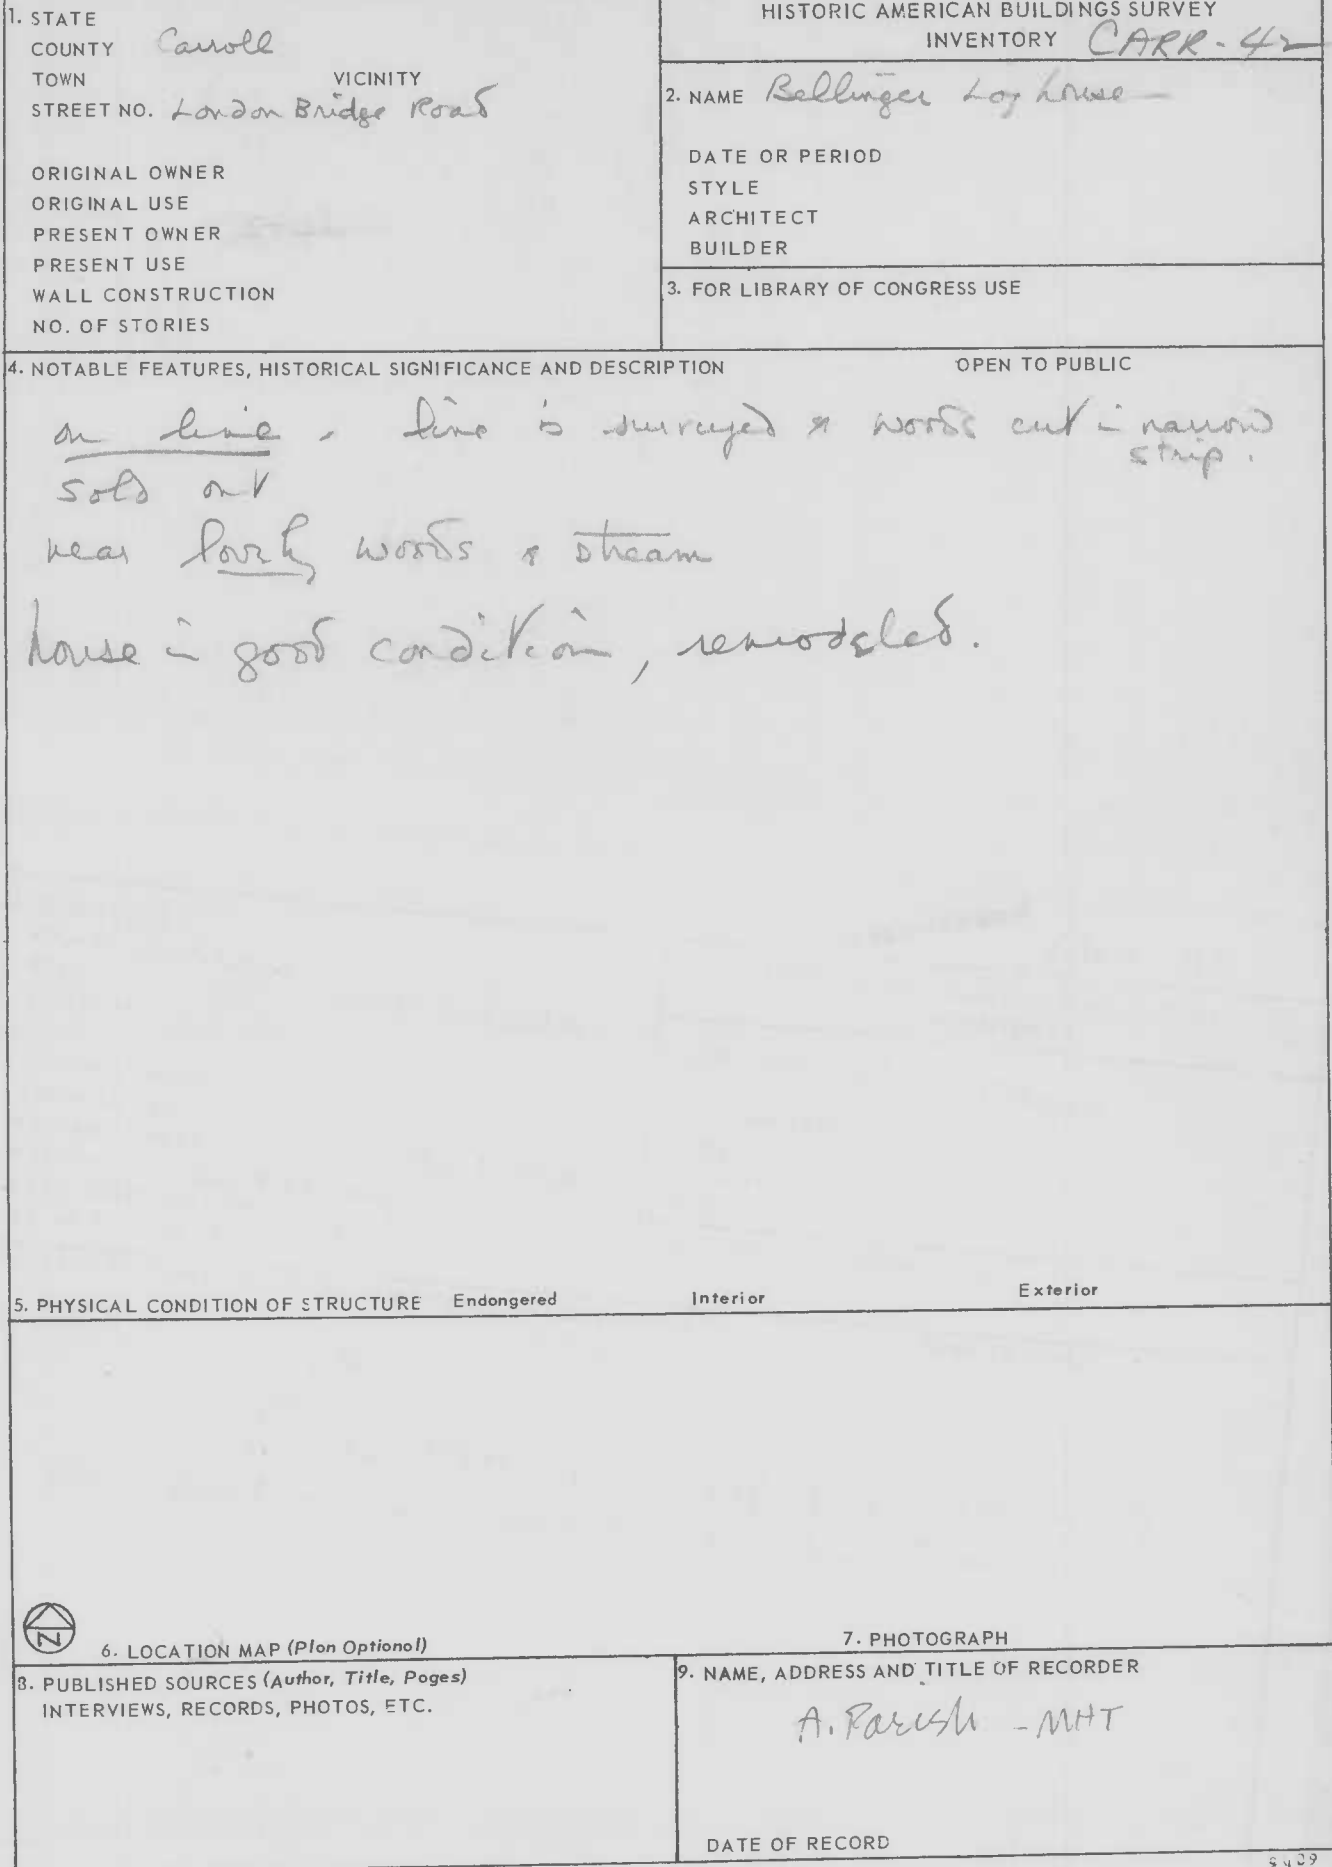 1. STATE
COUNTY Carroll
TOWN VICINITY
STREET NO. London Bridge Road
ORIGINAL OWNER
ORIGINAL USE
PRESENT OWNER
PRESENT USE
WALL CONSTRUCTION
NO. OF STORIES
HISTORIC AMERICAN BUILDINGS SURVEY
INVENTORY CARR-42
2. NAME Bellinger Log house
DATE OR PERIOD
STYLE
ARCHITECT
BUILDER
3. FOR LIBRARY OF CONGRESS USE
4. NOTABLE FEATURES, HISTORICAL SIGNIFICANCE AND DESCRIPTION OPEN TO PUBLIC
on line, line is surveyed & woods cut in narrow
strip.
sold out
near lovely woods & stream
house in good condition, remodeled.
5. PHYSICAL CONDITION OF STRUCTURE Endangered Interior Exterior
N
6. LOCATION MAP (Plan Optional)
7. PHOTOGRAPH
8. PUBLISHED SOURCES (Author, Title, Pages)
INTERVIEWS, RECORDS, PHOTOS, ETC.
9. NAME, ADDRESS AND TITLE OF RECORDER
A. Parish - MHT
DATE OF RECORD